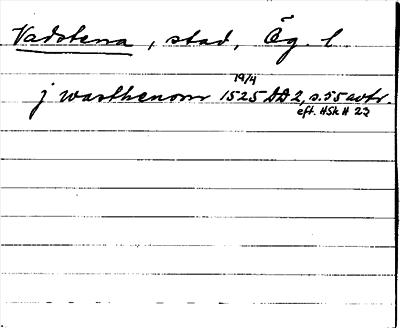 Vadstena, stad, Ög. l
j wasthenom 19/4 1525 DD 2, s. 55 avtr.
eft. HSk H 23